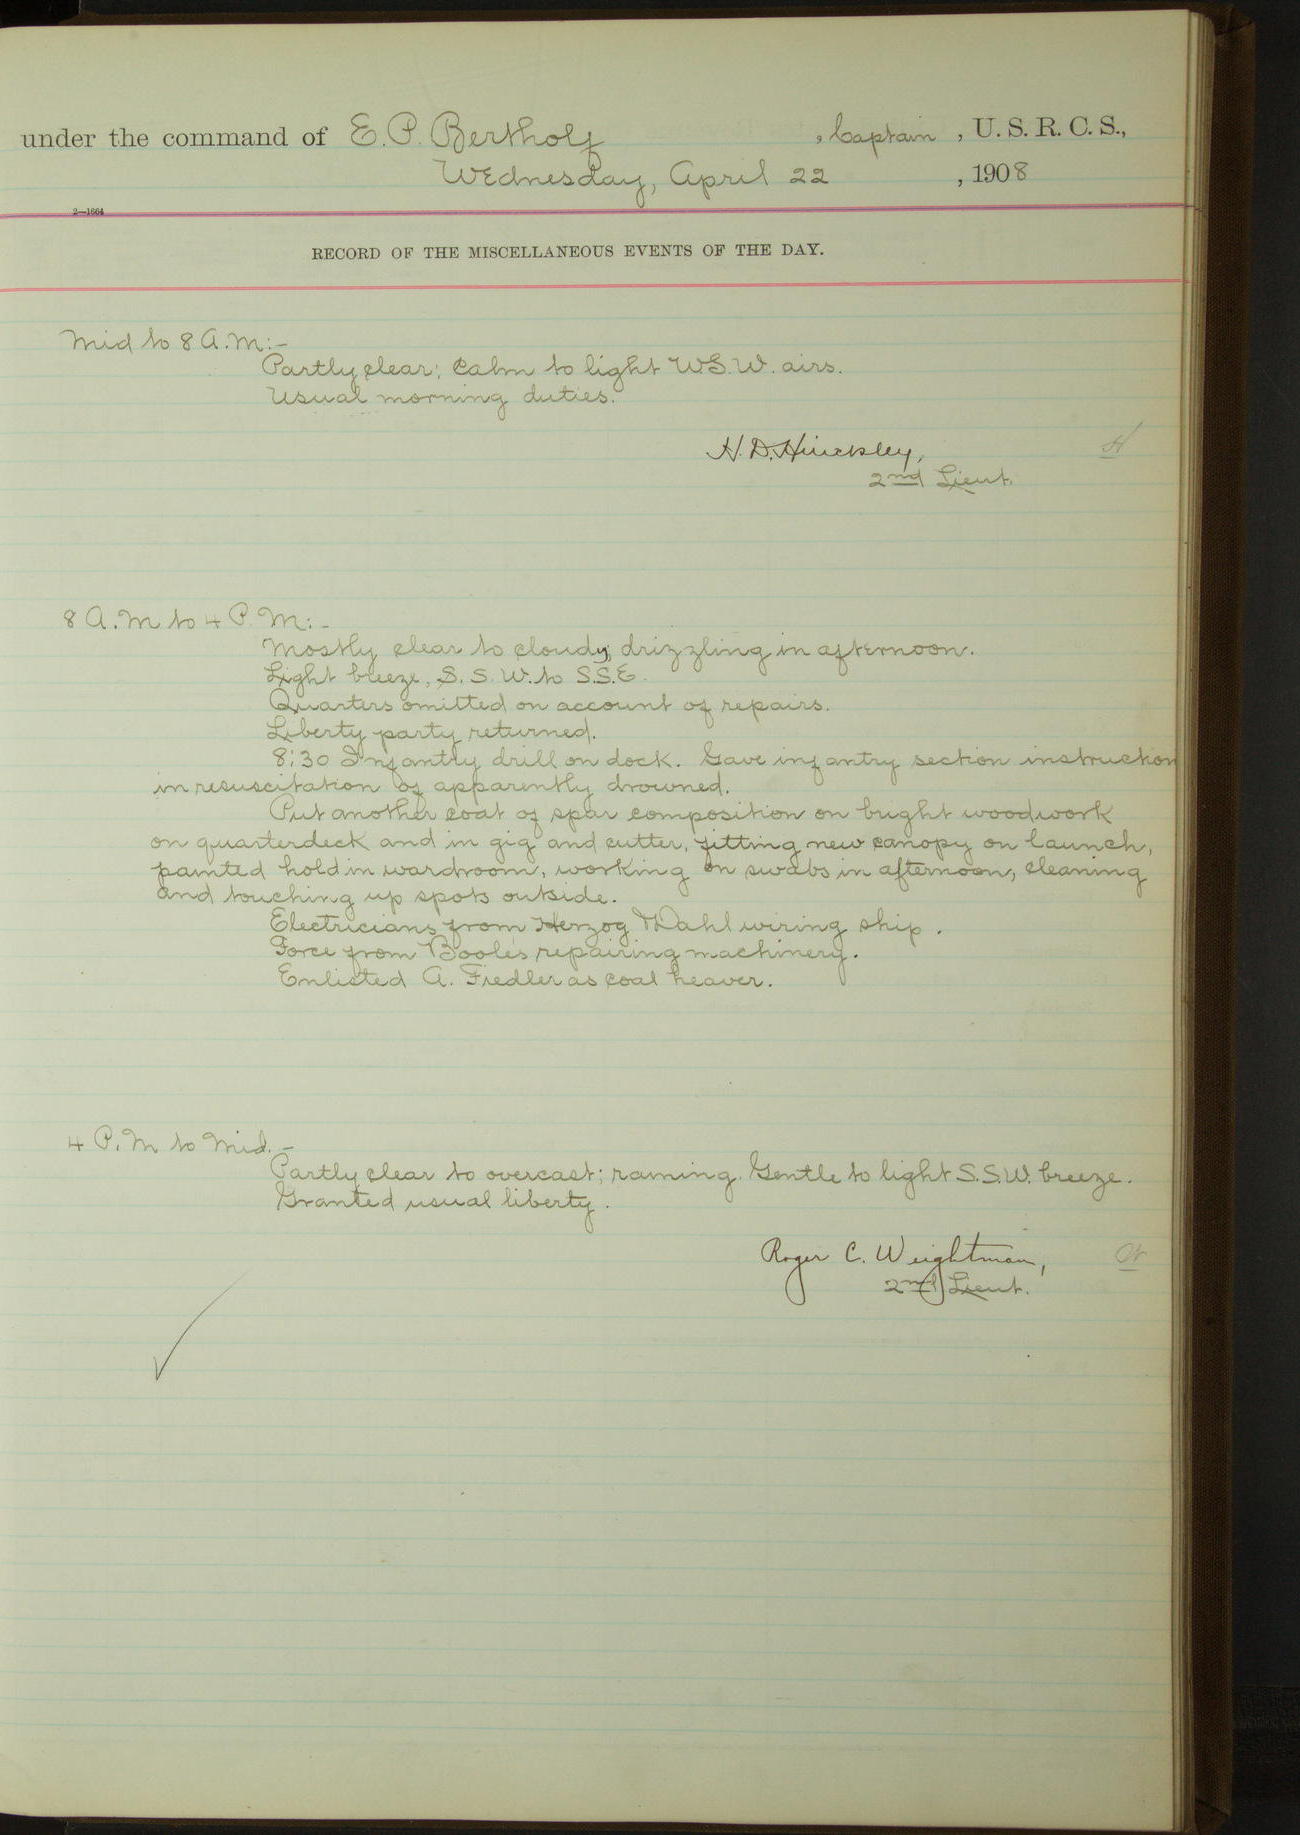 under the command of E. P. Bertholf, Captain, U. S. R. C. S.,
Wednesday, April 22, 1908
2—1664
RECORD OF THE MISCELLANEOUS EVENTS OF THE DAY.
Mid to 8 A.M:-
Partly clear; calm to light W.S.W. airs.
Usual morning duties.
H. D. Hinckley,
2nd Lieut.
H
8 A.M to 4 P.M:-
Mostly clear to cloudy; drizzling in afternoon.
Light breeze, S. S. W. to S.S.E.
Quarters omitted on account of repairs.
Liberty party returned.
8:30 Infantry drill on dock. Gave infantry section instruction
in resuscitation of apparently drowned.
Put another coat of spar composition on bright woodwork
on quarterdeck and in gig and cutter, fitting new canopy on launch,
painted hold in wardroom, working on swabs in afternoon, cleaning
and touching up spots outside.
Electricians from Herzog Dahl wiring ship.
Force from Booles repairing machinery.
Enlisted A. Fiedler as coal heaver.
4 P.M to Mid.-
Partly clear to overcast; raining. Gentle to light S.S.W. breeze.
Granted usual liberty.
Roger C. Weightman,
2nd Lieut.